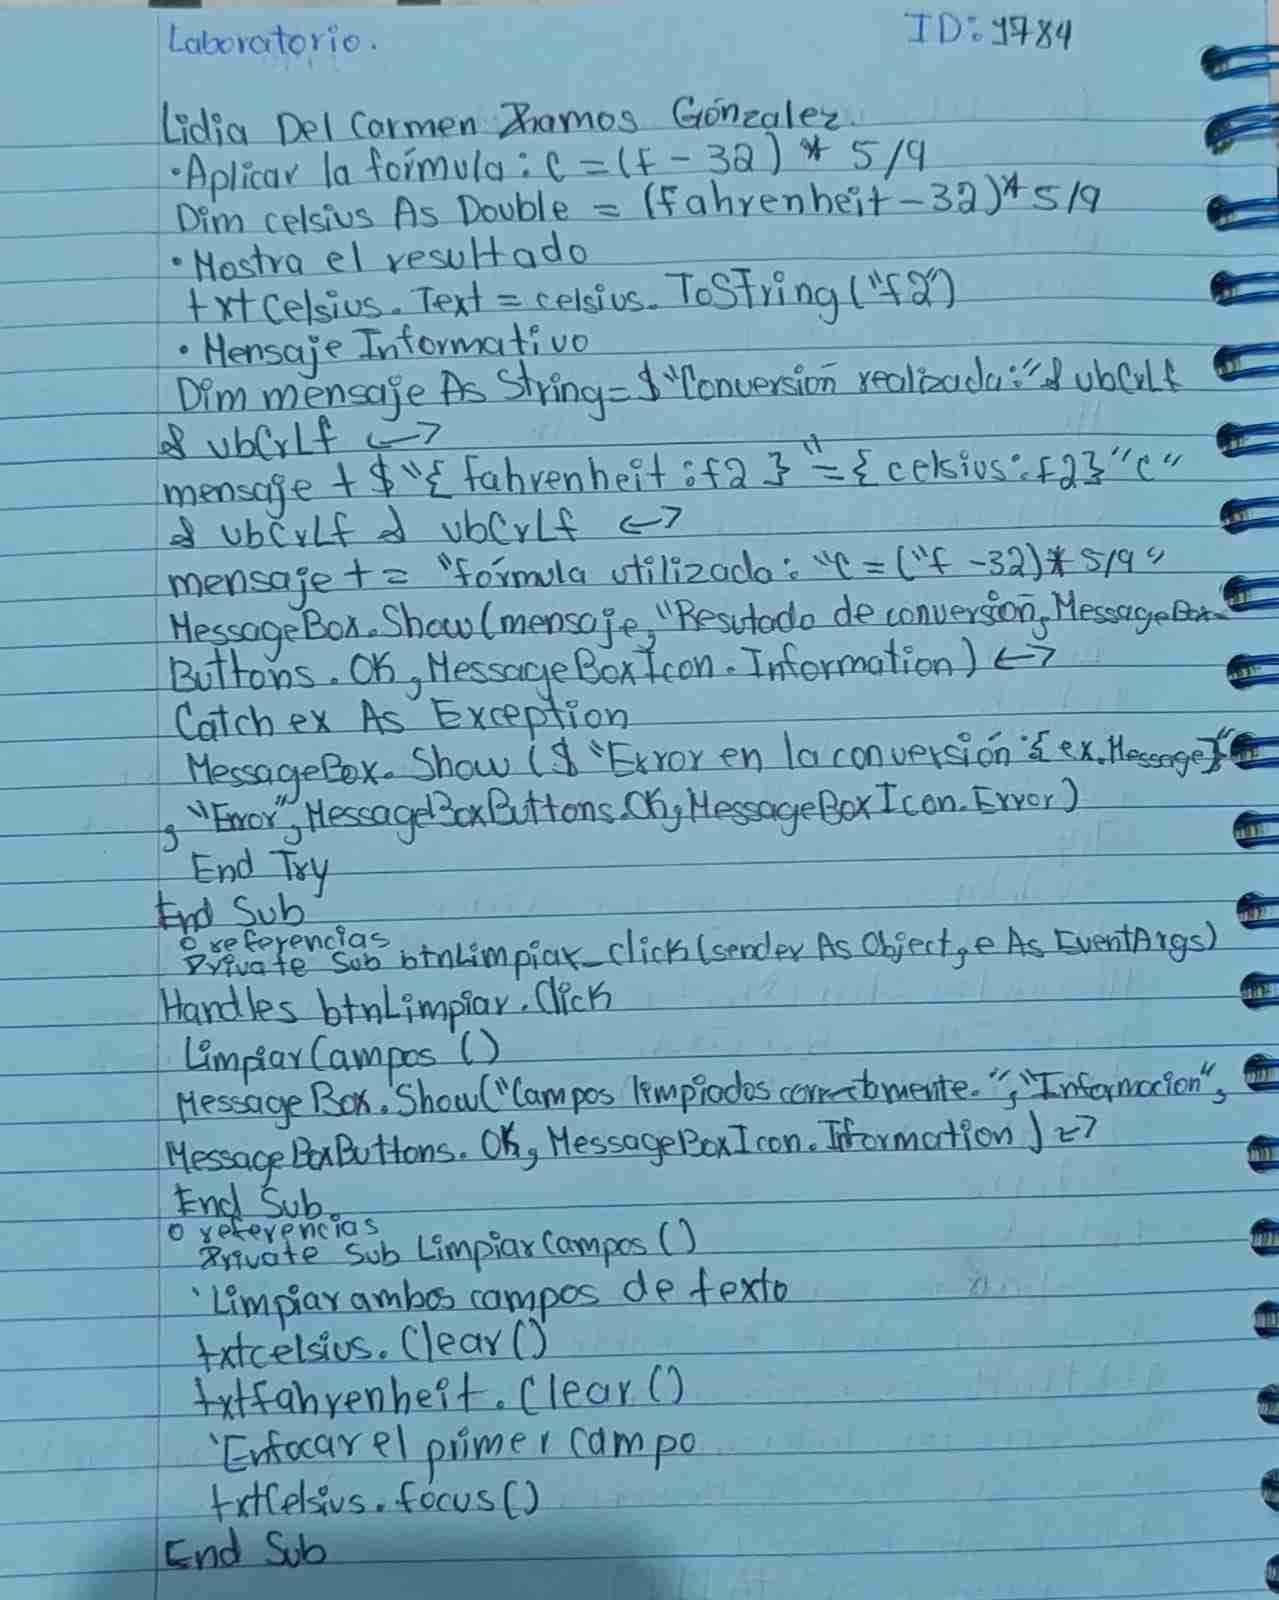 Laboratorio.
ID: 1784
Lidia Del Carmen Ramos González
·Aplicar la fórmula: C = (f - 32) * 5/9
Dim celsius As Double = (fahrenheit - 32)* 5/9
·Mostra el resultado
txtCelsius. Text = celsius. ToString ("f2")
· Mensaje Informativo
Dim mensaje As String = $ "Conversión realizada:" & vbCrLf
& vbCrLf ↔
mensaje + $ "{ fahrenheit : f2 } "= { celsius : f2} "C"
& vbCrLf & vbCrLf ↔
mensaje + = "fórmula utilizada: "C = ("f - 32) * 5/9"
MessageBox.Show(mensaje, "Resutado de conversión, MessageBox-
Buttons. OK, MessageBoxIcon. Information) ↔
Catch ex As Exception
MessageBox. Show ($ "Error en la conversión : { ex.Message}"
, "Error", MessageBoxButtons.OK, MessageBoxIcon.Error)
End Try
End Sub
0 referencias
Private Sub btnLimpiar_Click(sender As Object, e As EventArgs)
Handles btnLimpiar. Click
LimpiarCampos ()
MessageBox. Show("Campos limpiados correctamente.", "Informacion",
MessageBoxButtons. OK, MessageBoxIcon.Information) ↔
End Sub
0 referencias
Private Sub LimpiarCampos ()
'Limpiar ambos campos de texto
txtcelsius. Clear ()
txtfahrenheit. Clear ()
'Enfocar el primer campo
txtCelsius. focus ()
End Sub